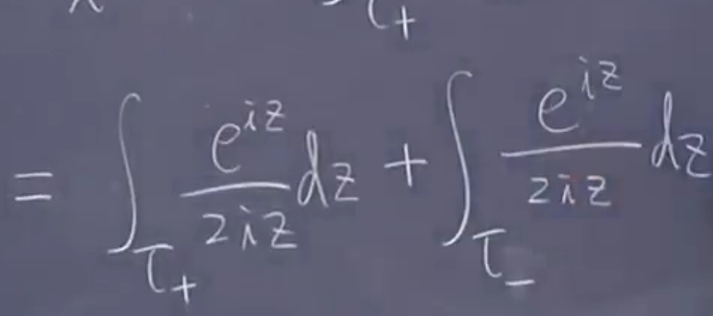 τ+
= ∫_{τ+} e^{iz}/2iz dz + ∫_{τ-} e^{iz}/2iz dz